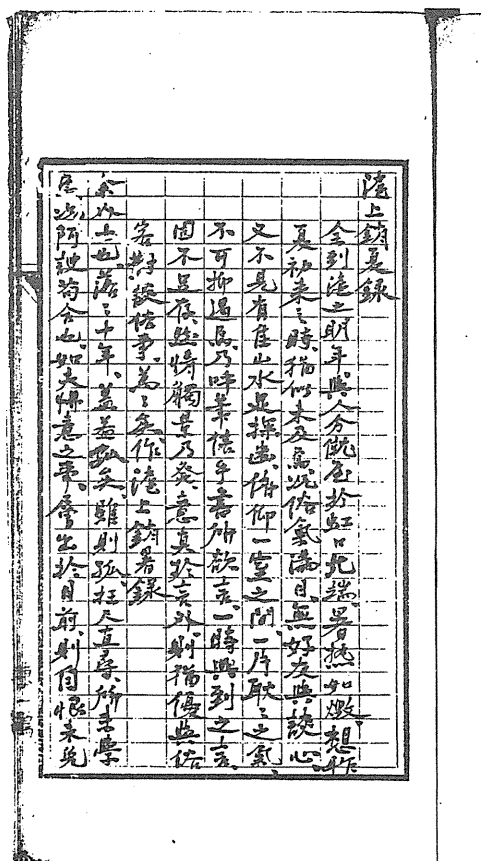 滬上銷夏錄
余到滬之明年、與人分僦屋於虹口北端、暑熱如燬、想昨
夏初來之時、猶似未及焉、況俗氣滿目、無好友與談心、
又不見有佳山水足探幽、俯仰一室之間、一片耿々之氣、
不可抑遏焉、乃呼筆借手言所欲言、一時興到之言、
固不足存、然情觸景乃發、意真於言外、則猶優與俗
客對談俗事、萬々矣、作滬上銷暑錄
余以士也、落々十年、蓋益孤矣、雖則孤、枉尺直尋、所未學
阿諛苟合也、如夫怫意之事、層出於目前、則自恨未免